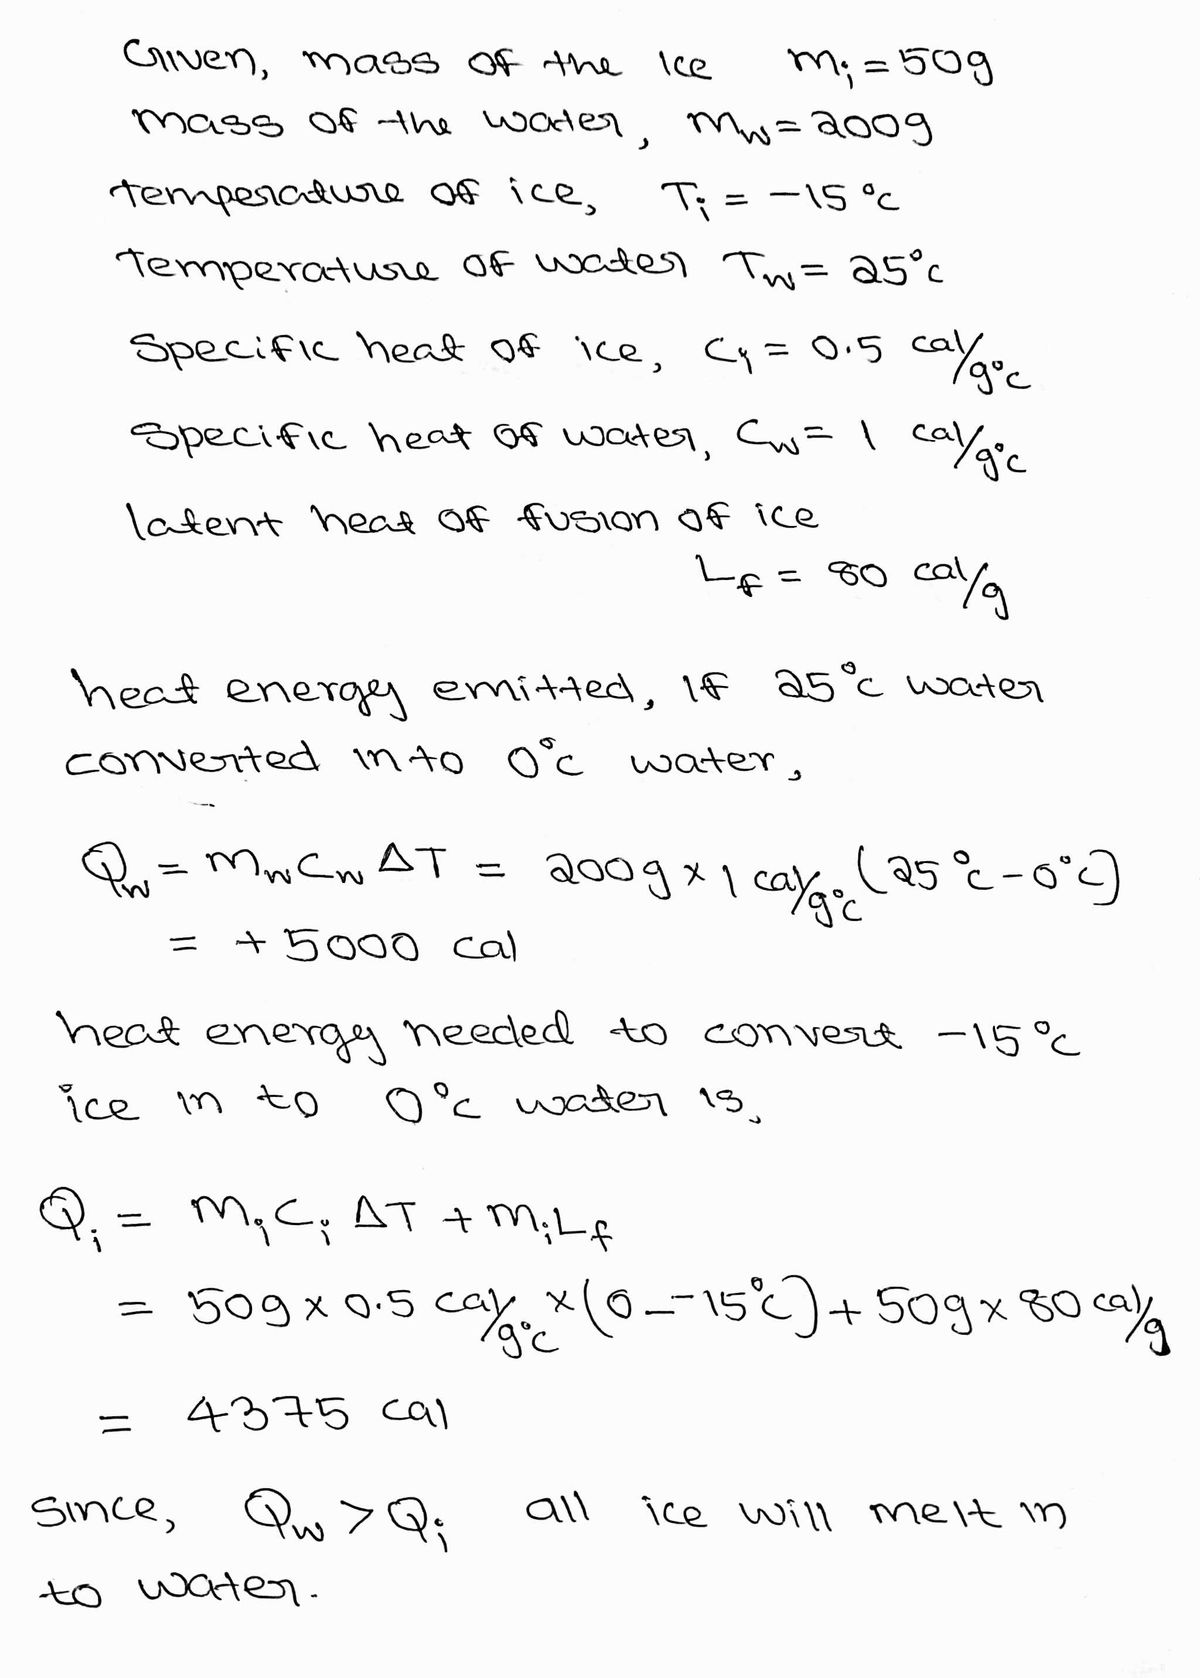 Given, mass of the ice mi = 50g
mass of the water, mw = 200g
temperature of ice, Ti = -15 °c
Temperature of water Tw = 25°c
Specific heat of ice, Ci = 0.5 cal/g°c
Specific heat of water, Cw = 1 cal/g°c
latent heat of fusion of ice
Lf = 80 cal/g
heat energy emitted, if 25°c water
converted in to 0°c water,
Qw = mw Cw ΔT = 200g × 1 cal/g°c (25°c - 0°c)
= + 5000 cal
heat energy needed to convert -15°c
ice in to 0°c water is,
Qi = mi Ci ΔT + mi Lf
= 50g × 0.5 cal/g°c × (0 - -15°c) + 50g × 80 cal/g
= 4375 cal
since, Qw > Qi all ice will melt in
to water.